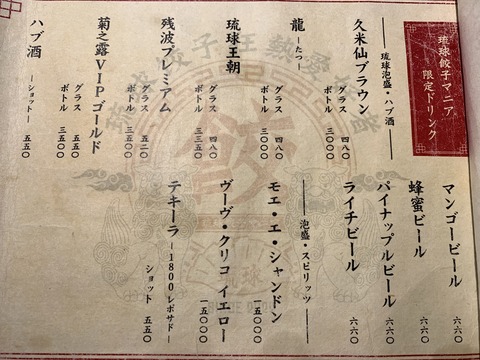 琉球餃子マニア
限定ドリンク
琉球泡盛・ハブ酒
久米仙ブラウン
グラス 四八〇
ボトル 三〇〇〇
龍 ―たつ―
グラス 四八〇
ボトル 三〇〇〇
琉球王朝
グラス 四八〇
ボトル 三三五〇
残波プレミアム
グラス 五二〇
ボトル 三五〇〇
菊之露VIPゴールド
グラス 五五〇
ボトル 三五〇〇
ハブ酒 ―ショット― 五五〇
マンゴービール 六六〇
蜂蜜ビール 六六〇
パイナップルビール 六六〇
ライチビール 六六〇
泡盛・スピリッツ
モエ・エ・シャンドン 一五〇〇〇
ヴーヴ・クリコ イエロー 一五〇〇〇
テキーラ ―1800 レポサド―
ショット 五五〇